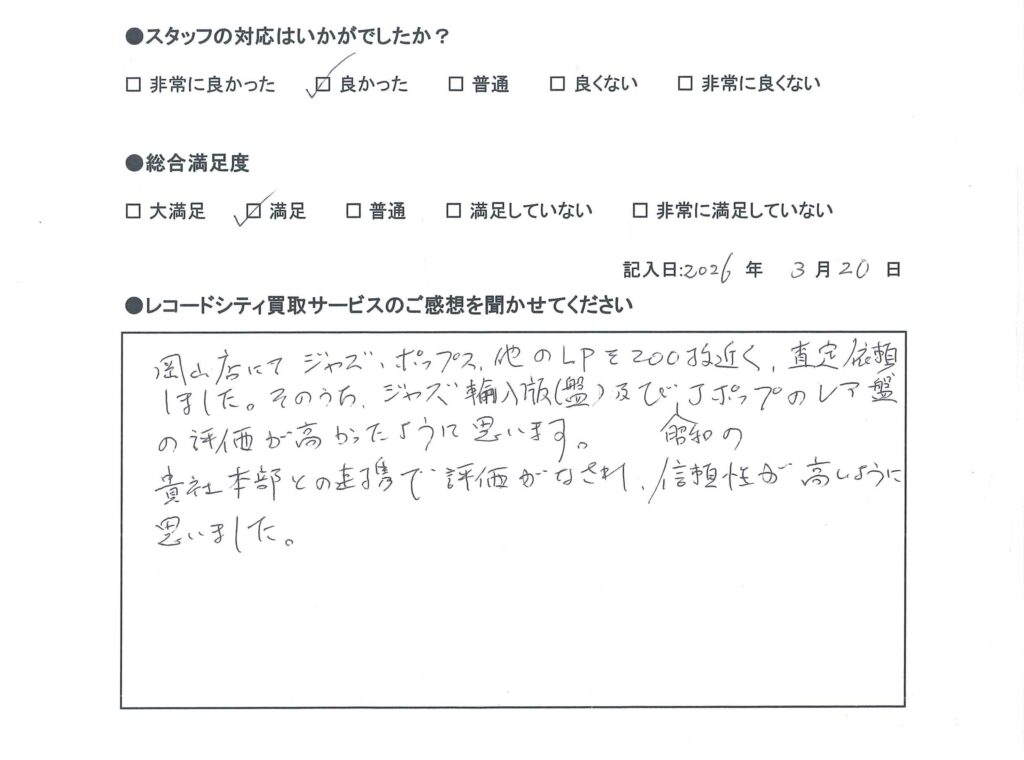 ●スタッフの対応はいかがでしたか？
□ 非常に良かった ☑ 良かった □ 普通 □ 良くない □ 非常に良くない
●総合満足度
□ 大満足 ☑ 満足 □ 普通 □ 満足していない □ 非常に満足していない
記入日:2026 年 3 月 20 日
●レコードシティ買取サービスのご感想を聞かせてください
岡山店にてジャズ、ポップス、他のLPを200枚近く、査定依頼
しました。そのうち、ジャズ輸入版(盤)及び昭和のJポップのレア盤
の評価が高かったように思います。
貴社本部との連携で評価がなされ、信頼性が高いように
思いました。